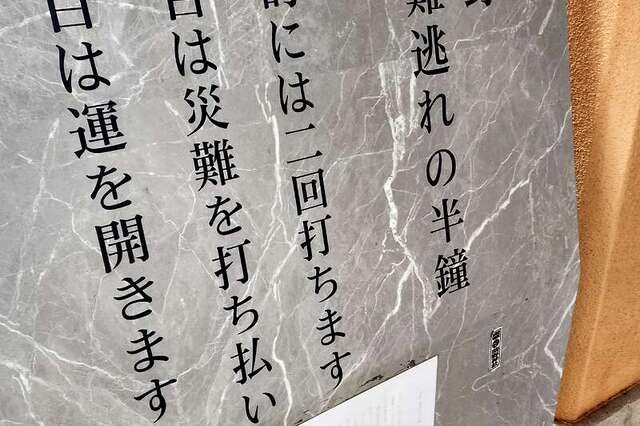 難逃れの半鐘
には二回打ちます
は災難を打ち払い
は運を開きます